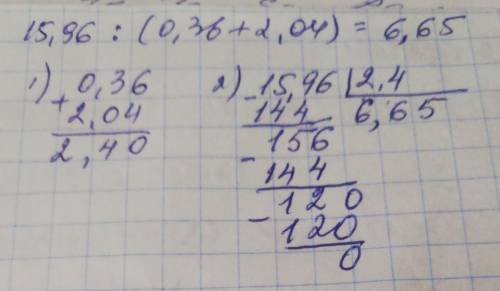 15,96 : (0,36 + 2,04) = 6,65
1) 0,36
+ 2,04
2,40
2) 15,96 | 2,4
- 144 6,65
156
- 144
120
- 120
0